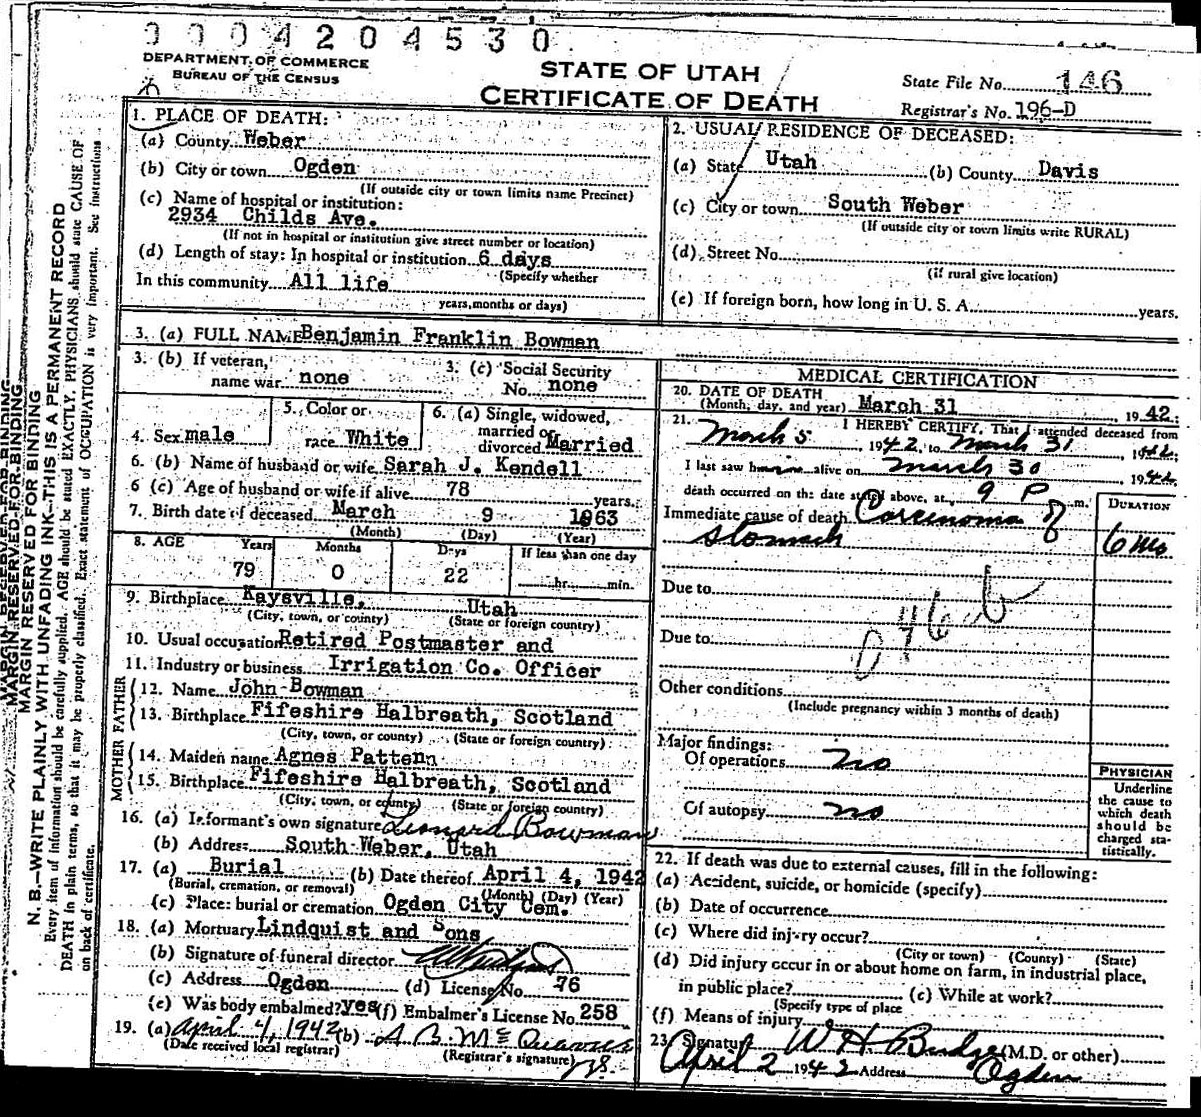 0004204530
DEPARTMENT OF COMMERCE
BUREAU OF THE CENSUS
STATE OF UTAH
CERTIFICATE OF DEATH
State File No. 146
Registrar's No. 196-D
1. PLACE OF DEATH:
(a) County Weber
(b) City or town Ogden
(If outside city or town limits name Precinct)
(c) Name of hospital or institution:
2934 Childs Ave.
(If not in hospital or institution give street number or location)
(d) Length of stay: In hospital or institution 6 days
(Specify whether
In this community All life
years, months or days)
2. USUAL RESIDENCE OF DECEASED:
(a) State Utah (b) County Davis
(c) City or town South Weber
(If outside city or town limits write RURAL)
(d) Street No.
(if rural give location)
(e) If foreign born, how long in U. S. A. years.
3. (a) FULL NAME Benjamin Franklin Bowman
3. (b) If veteran, name war none
3. (c) Social Security No. none
4. Sex male
5. Color or race White
6. (a) Single, widowed, married or divorced Married
6. (b) Name of husband or wife Sarah J. Kendell
6 (c) Age of husband or wife if alive 78 years.
7. Birth date of deceased March 9 1863
(Month) (Day) (Year)
8. AGE Years Months Days If less than one day
79 0 22 hr. min.
9. Birthplace Kaysville, Utah
(City, town, or county) (State or foreign country)
10. Usual occupation Retired Postmaster and
11. Industry or business Irrigation Co. Officer
FATHER
12. Name John Bowman
13. Birthplace Fifeshire Halbreath, Scotland
(City, town, or county) (State or foreign country)
MOTHER
14. Maiden name Agnes Pattenn
15. Birthplace Fifeshire Halbreath, Scotland
(City, town, or county) (State or foreign country)
16. (a) Informant's own signature Leonard Bowman
(b) Address South Weber, Utah
17. (a) Burial (b) Date thereof April 4, 1942
(Burial, cremation, or removal) (Month) (Day) (Year)
(c) Place: burial or cremation Ogden City Cem.
18. (a) Mortuary Lindquist and Sons
(b) Signature of funeral director
(c) Address Ogden (d) License No. 76
(e) Was body embalmed? yes (f) Embalmer's License No. 258
19. (a) April 4, 1942 (b)
(Date received local registrar) (Registrar's signature)
MEDICAL CERTIFICATION
20. DATE OF DEATH
(Month, day, and year) March 31 1942.
21. I HEREBY CERTIFY, That I attended deceased from
March 5 1942 to March 31, 1942
I last saw him alive on March 30 1942
death occurred on the date stated above, at 9 P m.
DURATION
Immediate cause of death Carcinoma of
stomach 6 Mo
Due to
046-b
Due to
Other conditions
(Include pregnancy within 3 months of death)
Major findings:
Of operations no
Of autopsy no
PHYSICIAN
Underline
the cause to
which death
should be
charged sta-
tistically.
22. If death was due to external causes, fill in the following:
(a) Accident, suicide, or homicide (specify)
(b) Date of occurrence
(c) Where did injury occur?
(City or town) (County) (State)
(d) Did injury occur in or about home on farm, in industrial place,
in public place? (e) While at work?
(Specify type of place
(f) Means of injury
23. Signature W H Budge (M.D. or other)
April 2 1942 Address Ogden
MARGIN RESERVED FOR BINDING
N. B.—WRITE PLAINLY WITH UNFADING INK—THIS IS A PERMANENT RECORD
Every item of information should be carefully supplied. AGE should be stated EXACTLY. PHYSICIANS should state CAUSE OF
DEATH in plain terms, so that it may be properly classified. Exact statement of OCCUPATION is very important. See instructions
on back of certificate.